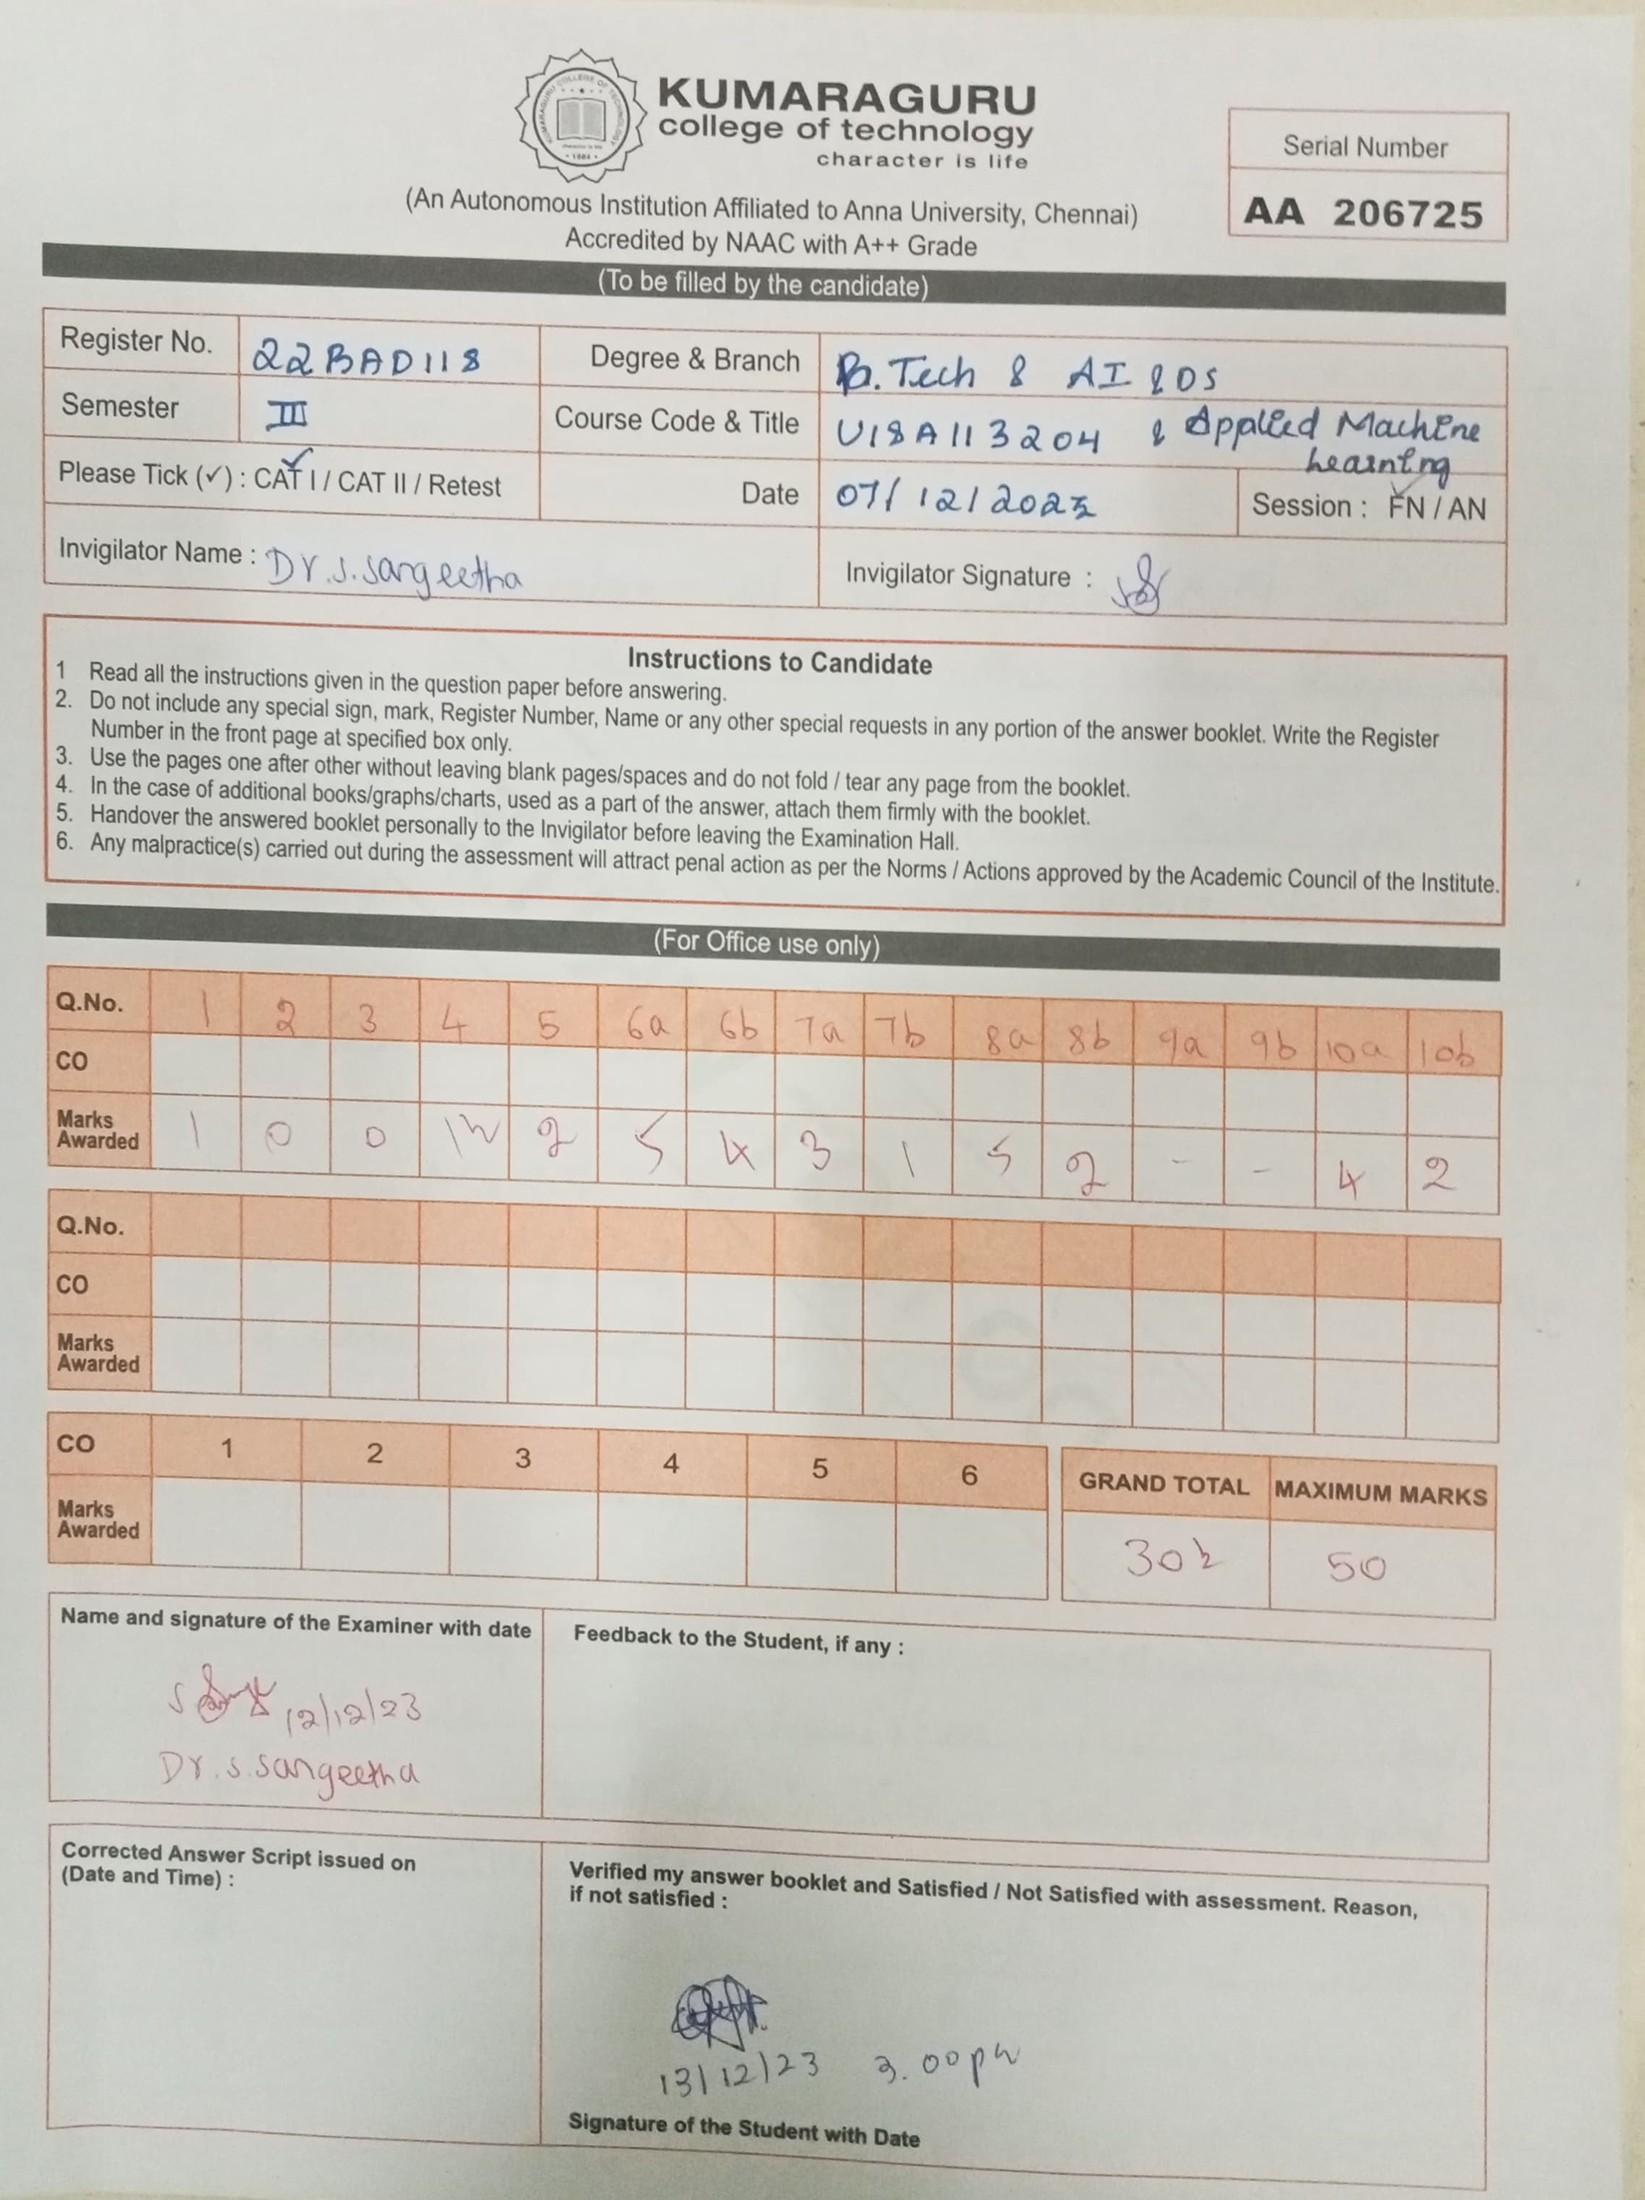 KUMARAGURU
college of technology
character is life
(An Autonomous Institution Affiliated to Anna University, Chennai)
Accredited by NAAC with A++ Grade
Serial Number
AA 206725
(To be filled by the candidate)
Register No. 22BAD118 Degree & Branch B.Tech & AI & DS
Semester III Course Code & Title U18AII3204 & Applied Machine Learning
Please Tick (✓) : CAT I / CAT II / Retest Date 07/12/2023 Session : FN / AN
Invigilator Name : Dr.S.Sangeetha Invigilator Signature :
Instructions to Candidate
1 Read all the instructions given in the question paper before answering.
2. Do not include any special sign, mark, Register Number, Name or any other special requests in any portion of the answer booklet. Write the Register
Number in the front page at specified box only.
3. Use the pages one after other without leaving blank pages/spaces and do not fold / tear any page from the booklet.
4. In the case of additional books/graphs/charts, used as a part of the answer, attach them firmly with the booklet.
5. Handover the answered booklet personally to the Invigilator before leaving the Examination Hall.
6. Any malpractice(s) carried out during the assessment will attract penal action as per the Norms / Actions approved by the Academic Council of the Institute.
(For Office use only)
Q.No. 1 2 3 4 5 6a 6b 7a 7b 8a 8b 9a 9b 10a 10b
CO
Marks Awarded 1 0 0 1½ 2 5 4 3 1 5 2 - - 4 2
Q.No.
CO
Marks Awarded
CO 1 2 3 4 5 6
Marks Awarded
GRAND TOTAL MAXIMUM MARKS
30½ 50
Name and signature of the Examiner with date
12/12/23
Dr.S.Sangeetha
Feedback to the Student, if any :
Corrected Answer Script issued on
(Date and Time) :
Verified my answer booklet and Satisfied / Not Satisfied with assessment. Reason,
if not satisfied :
13/12/23 3.00pm
Signature of the Student with Date